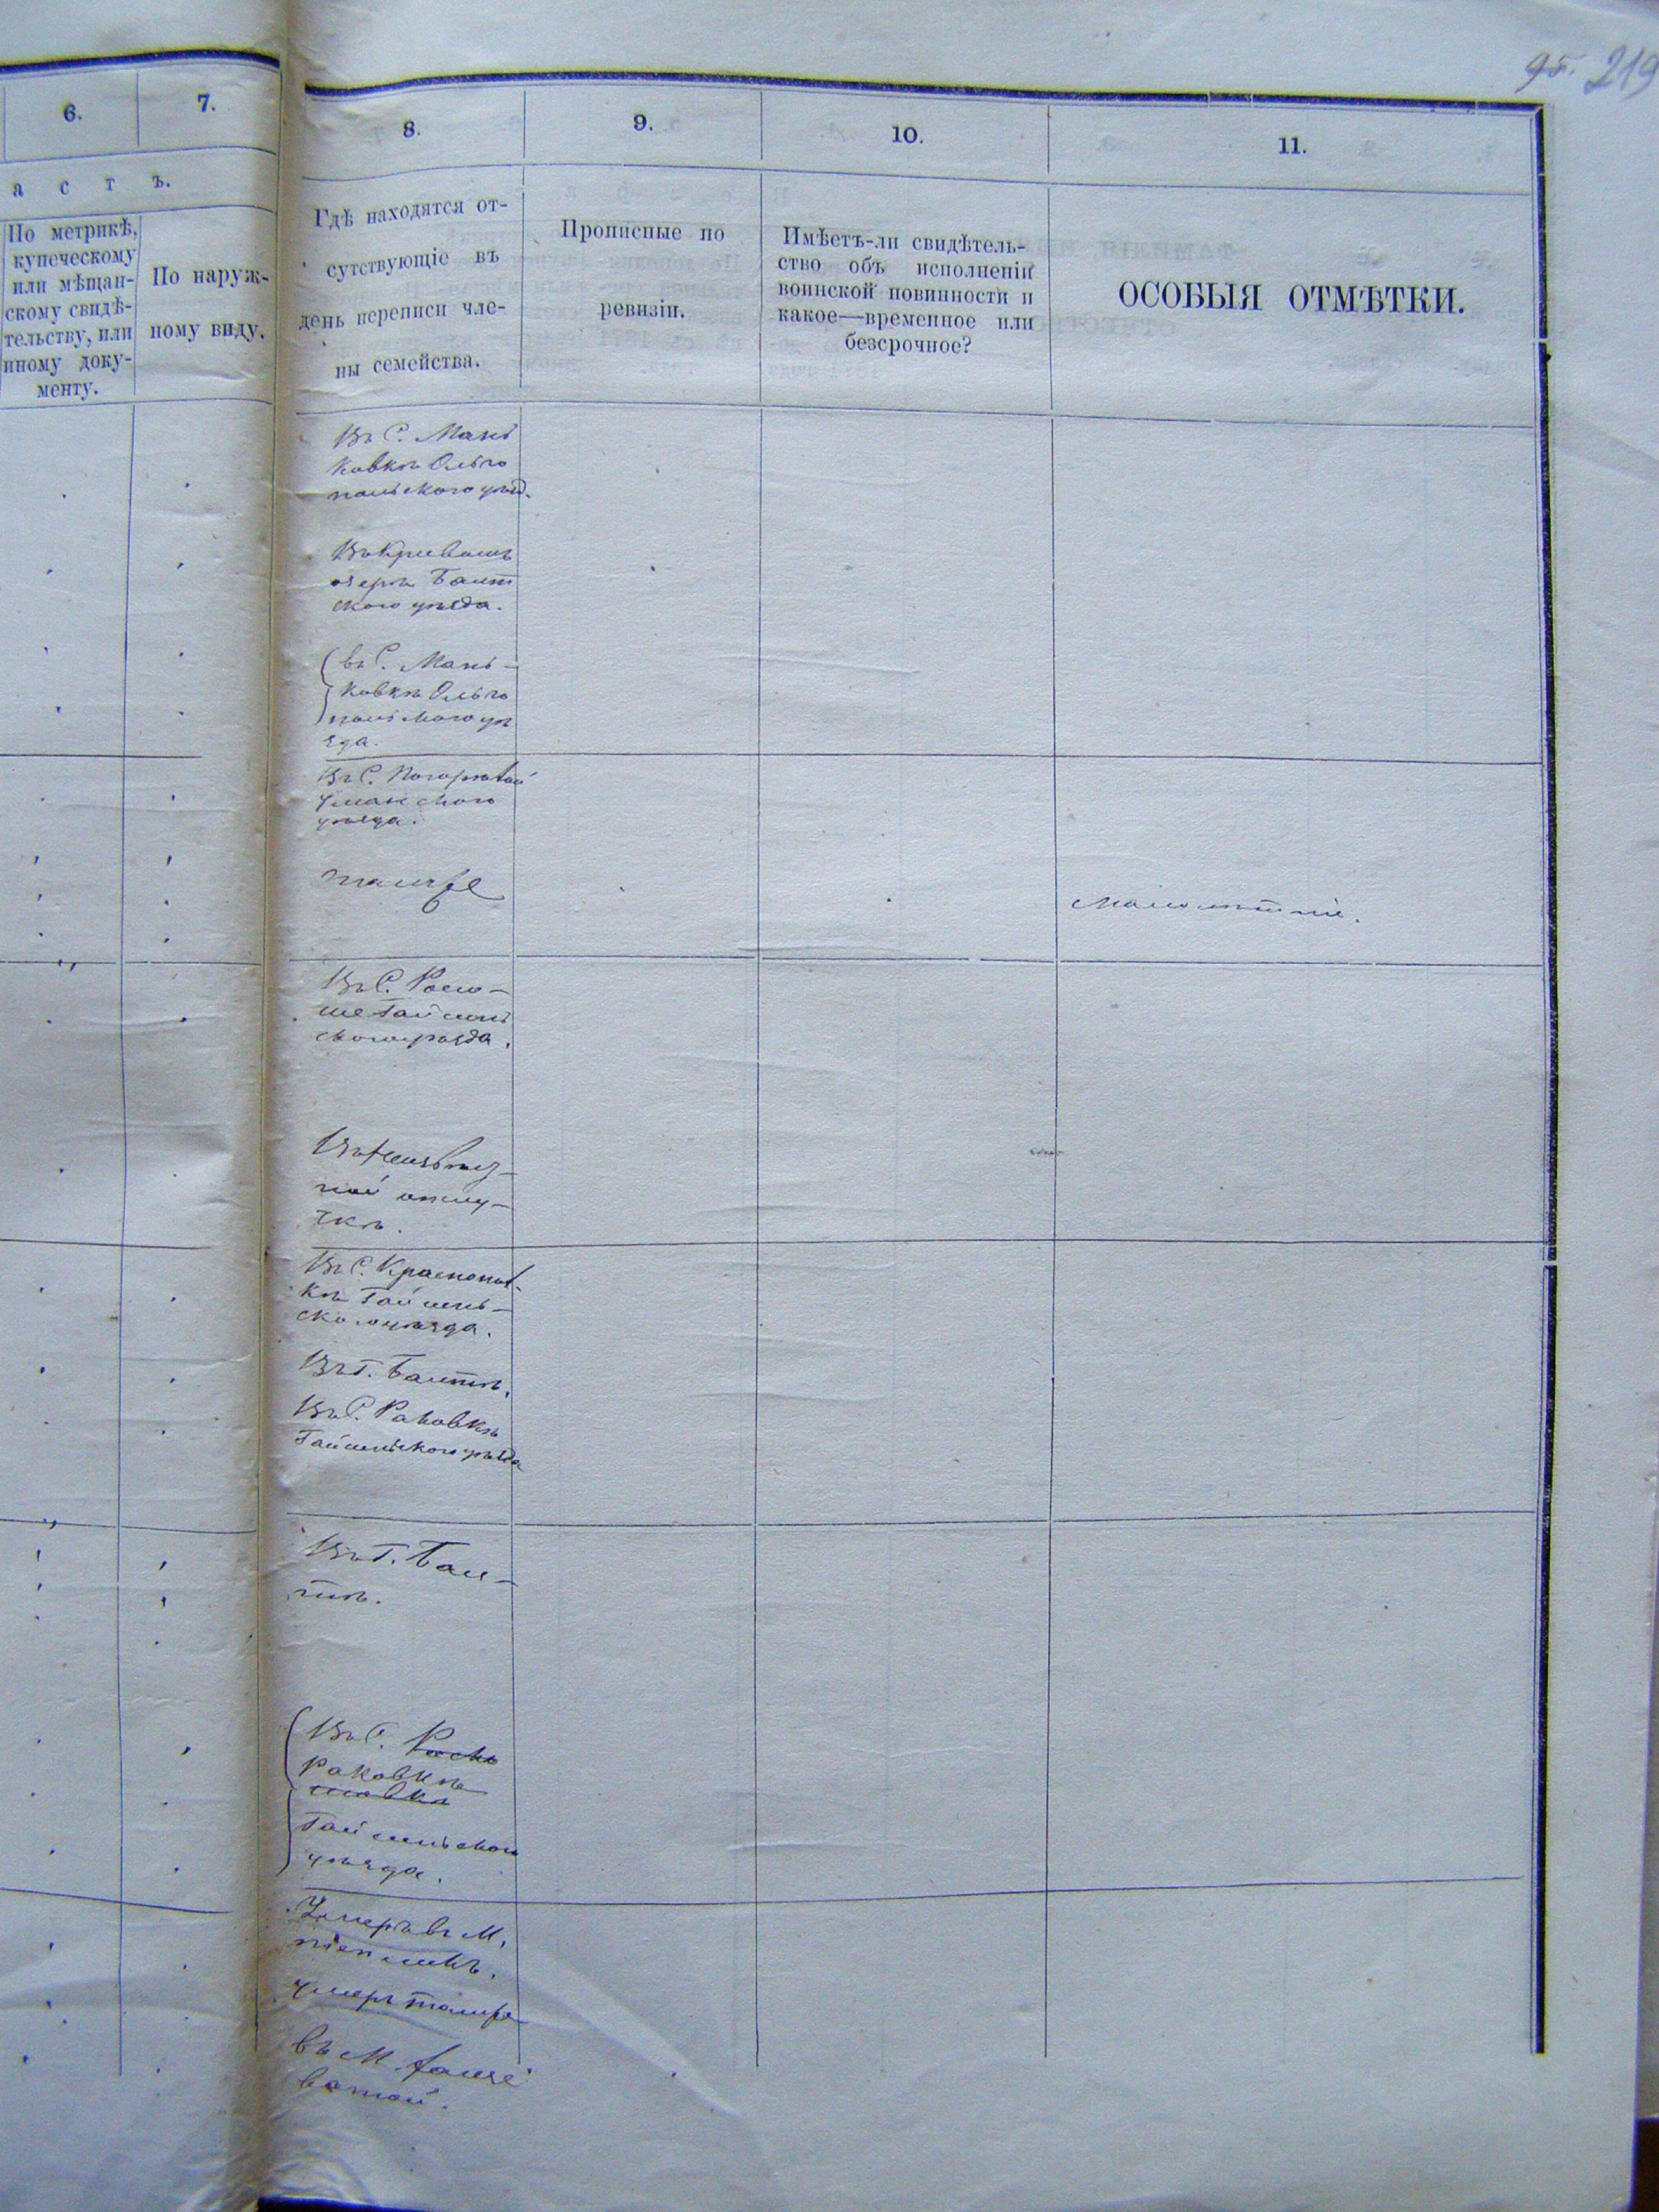 95. 219
6.
7.
8.
9.
10.
11.
а с т ъ.
По метрикѣ,
купеческому
или мѣщан-
скому свидѣ-
тельству, или
иному доку-
менту.
По наруж-
ному виду.
Гдѣ находятся от-
сутствующіе въ
день переписи чле-
ны семейства.
Прописные по
ревизіи.
Имѣетъ-ли свидѣтель-
ство объ исполненіи
воинской повинности и
какое—временное или
безсрочное?
ОСОБЫЯ ОТМѢТКИ.
Въ С. Мань
ковкѣ Ольго
польского уѣзд.
Въ Кривомъ
озерѣ Балт
ского уѣзда.
въ С. Мань-
ковкѣ Ольго
польского уѣ
зда.
Въ С.
Уманского
уѣзда.
тамже
Малолѣтніе.
Въ С.
Гайсин
ского уѣзда.
Въ неизвѣст-
ной отлу-
чкѣ.
Въ С. Краснопол-
кѣ Гайсинь-
ского уѣзда.
Въ Г. Балтѣ.
Въ С. Раковкѣ
Гайсинского уѣзда
Въ Г. Бал-
тѣ.
Въ С.
Раковкѣ
Гайсиньского
уѣзда.
Умеръ въ М.
Умеръ тамже
въ М.